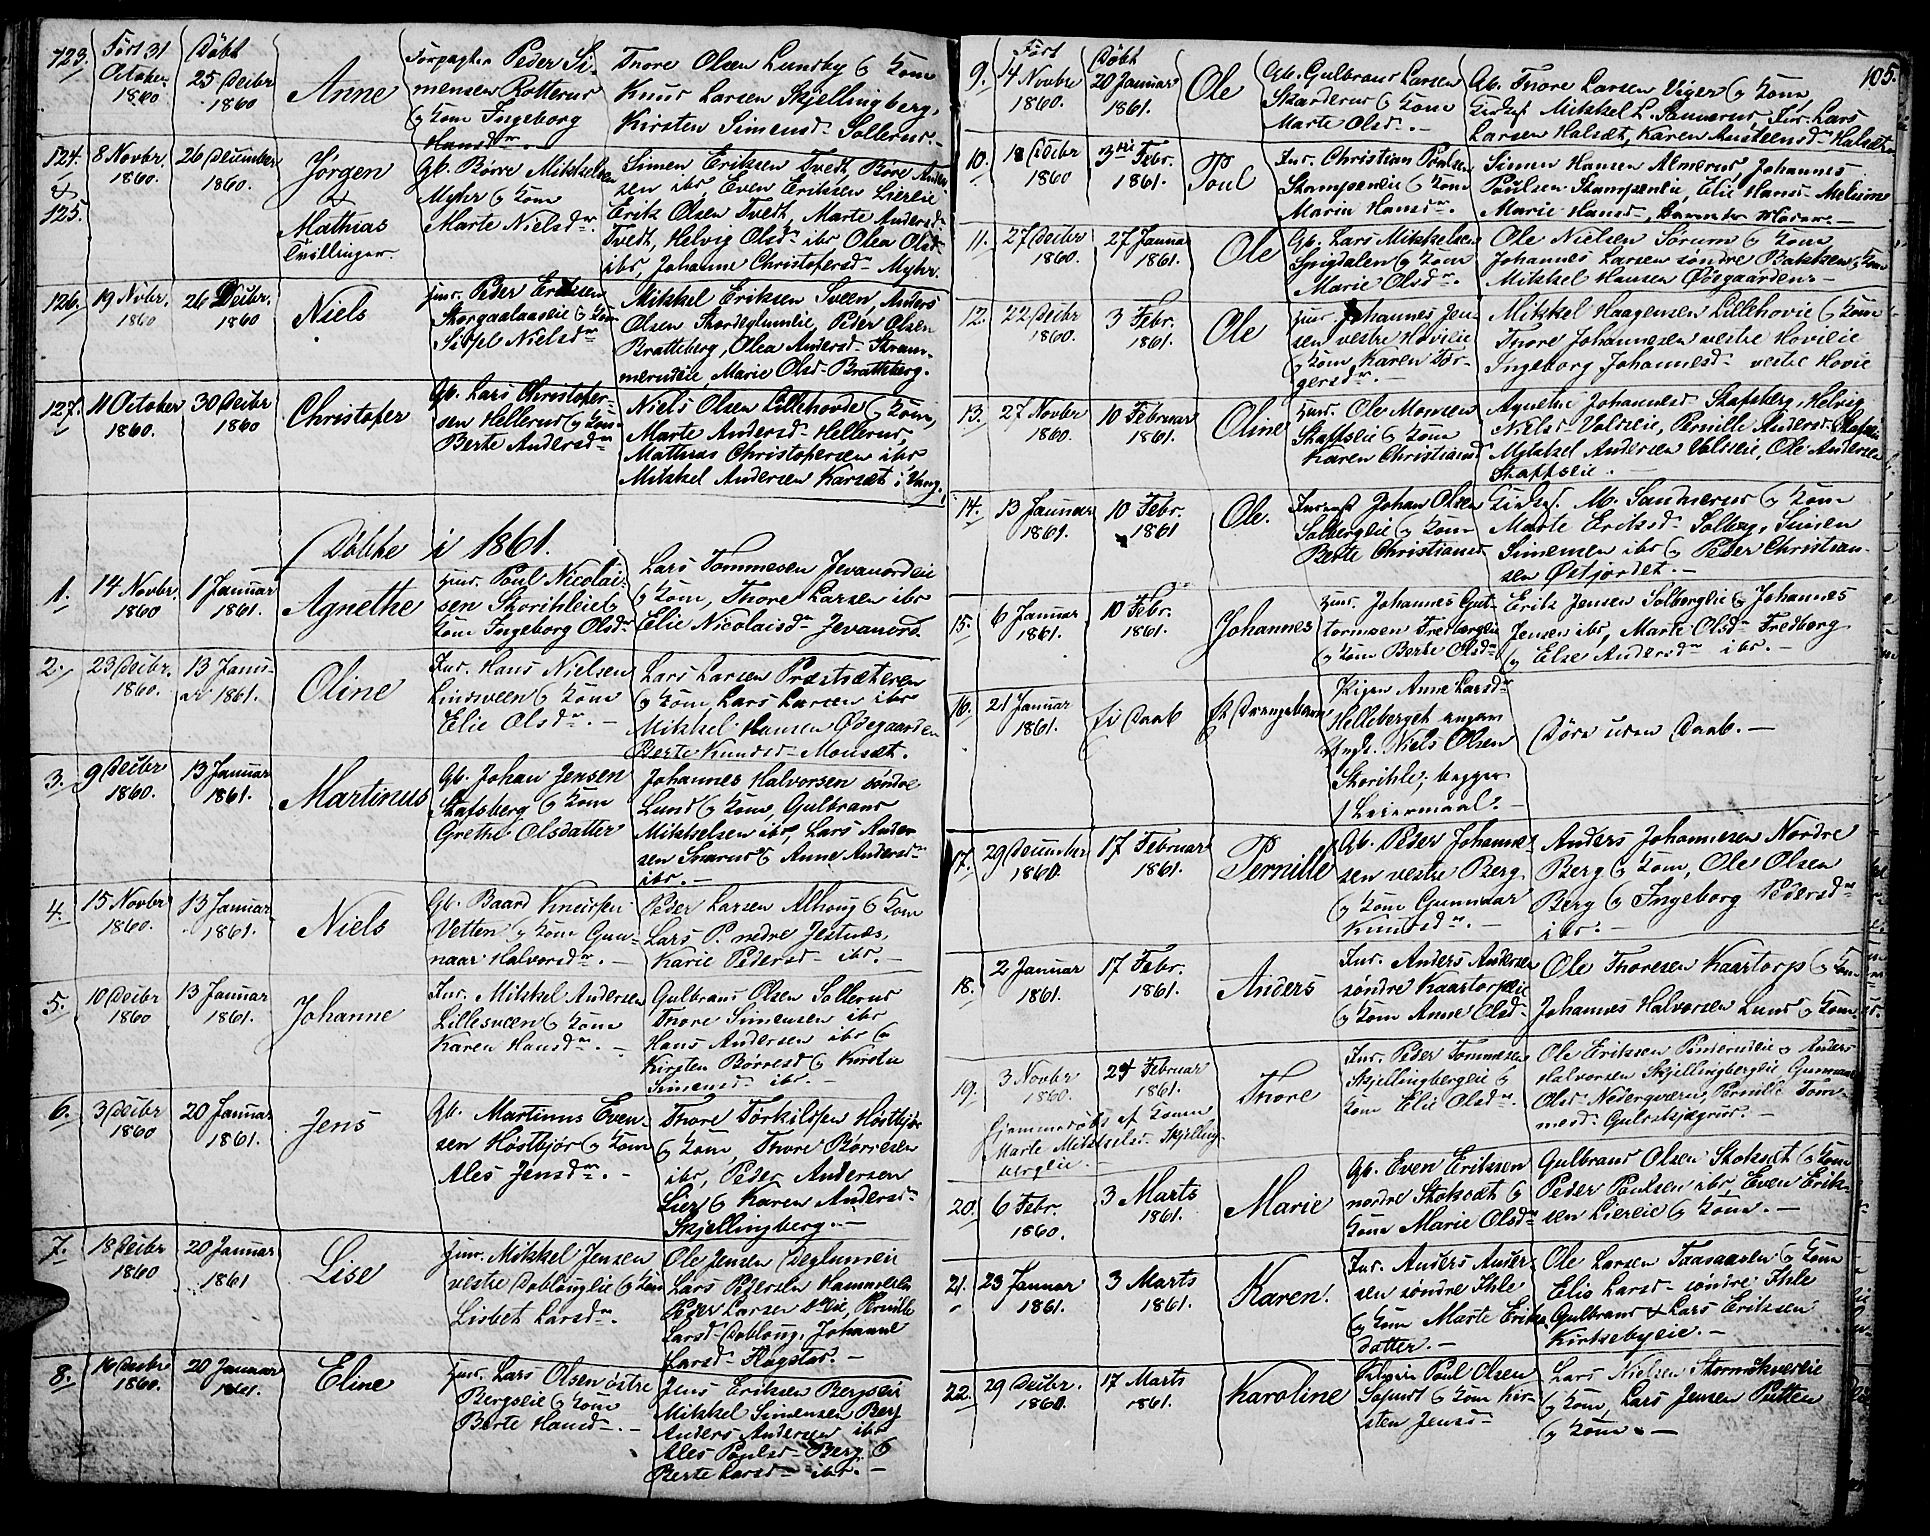 123. Født 31 October 1860 Døbt 25 Decbr 1860 Anne
Forpagter Peder Si-
mensen Rotterud
og Kone Ingeborg
Hansdr.
Thore Olsen Lundby og Kone
Knud Larsen Skjellingberg,
Kirsten Simensd. Sollerud.
124. & 125. 8 Novbr. 1860. 26 December 1860. Jørgen & Mathias Tvillinger.
Gb. Børre Mikkelsen
Myhr og Kone
Marte Nielsdr.
Simen Eriksen Tvedt, Børre Ander-
sen ibd, Even Eriksen Liereie
Erik Olsen Tvedt, Marte Andersd.
Tvedt, Helvig Olsdr ibd, Olea Olsd.
ibd, Johanne Christofersd. Myhr.
126. 19 Novbr. 1860 26 Decbr. 1860 Niels
Huusm. Peder Eriksen
og Kone
Nielsdr
Mikkel Eriksen Sveen, Anders
Olsen Peder Olsen
Bratteberg, Olea Andersd. Stram-
merudeie, Marie Olsd. Bratteberg.
127. 11 October 1860. 30 Decbr 1860 Christofer
Gb. Lars Christofer-
sen Hellerud og Kone
Berte Andersdr
Niels Olsen Lillehovde og Kone,
Marte Andersd. Hellerud,
Mathias Christofersen ibd
Mikkel Andersen Karset i Vang.
Døbte i 1861.
1. 14 Novbr. 1860 1 Januar 1861. Agnethe
Huusm. Poul Nicolai-
sen Skorihleie og
Kone Ingeborg Olsdr
Lars Tommesen Jevanordeie
og Kone, Thore Larsen ibd
Elie Nicolaisdr Jevanord.
2. 23 Decbr. 1860. 13 Janu-
ar 1861. Oline
Ind. Hans Nielsen
Lindsveen og Kone
Elie Olsdr.
Lars Larsen Præstsæteren
og Kone, Lars Larsen ibd
Mikkel Hansen Ødegaarden
Berte Knudsd. Monsæt.
3. 9 Decbr 1860. 13 Januar 1861. Martinus
Gb. Johan Jensen
Skafsberg og Kone
Grethe Olsdatter
Johannes Halvorsen søndre
Lund og Kone, Gulbrand
Mikkelsen ibd, Lars Ander-
sen og Anne Andersd.
ibd.
4. 15 Novbr 1860. 13 Januar 1861. Niels
Gb. Baard Knudsen
Vetten og Kone Gun-
naar Halvorsdr.
Peder Larsen Alhoug og Kone
Lars P. nedre Jestnæs,
Karie Pedersd. ibd.
5. 10 Decbr 1860 13 Januar 1861. Johanne
Ind. Mikkel Andersen
Lillesveen og Kone
Karen Hansdr.
Gulbrand Olsen Sollerud
Thore Simensen ibd
Hans Andersen ibd og
Kirsten Børresd og Kirsten
Simensd. ibd.
6. 3 Decbr 1860 20 Januar 1861. Jens
Gb. Martinus Even-
sen Høstbjør og Kone
Ales Jensdr.
Thore Torkilssen Høstbjør
og Kone, Thore Børresen
ibd, Peder Andersen
Lier og Karen Andersd.
Skjellingberg.
7. 18 Decbr 1860 20 Januar 1861 Lise
Huusm. Mikkel Jensen
vestre Doblougeie og Kone
Lisbet Larsdr.
Ole Jensen Deglumeie
Lars Pedersen
Peder Larsen Pernille
Larsd. Doblong, Johanne
Larsd. Flagstad.
8. 16 Decbr 1860. 20 Januar 1861. Eline
Huusm. Lars Olsen østre
Bergseie og Kone
Berte Hansd.
Jens Eriksen Bergseie
Mikkel Simensen Berg
Anders Andersen ibd
Ales Paulsd. Berg og
Berte Larsd. ibd.
105.
9. Født 14 Novbr 1860. Døbt 20 Januar 1861. Ole
Gb. Gulbrand Larsen
Skarderud og Kone
Marte Olsd.
Gb. Thore Larsen Viger og Kone
Mikkel L. Sannerud, Ind. Lars
Larsen Halsæt, Karen Austensdr Halsæt.
10. 18 Decbr 1860 3die Febr. 1861. Poul
Ind. Christian
Stampeneie og Kone
Marin Hansdr.
Simen Hansen Almerud, Johannes
Paulsen Stampeneie, Elie Hansd. Melum
Marie Hansd, Barnets Moder.
11. 27 Decbr 1860. 27 Januar 1861. Ole
Gb. Lars Mikkelsen
Snigdalen og Kone
Marie Olsdr.
Ole Nielsen Sørum og Kone
Johannes Larsen søndre Bakken og Kone
Mikkel Hansen Ødegaarden.
12. 22 Decbr 1860. 3 Febr. 1861. Ole
Huusm Johannes Jen-
sen vestre Hovieie
og Kone Karen Tor-
gersdr.
Mikkel Haagensen Lillehovie og Kone
Thore Johannesen vestre Hovieie
Ingeborg Johannesd. vestre Hovie
13. 27 Novbr 1860. 10 Februar 1861. Oline
Huusm. Ole Monsen
Skaftseie og Kone
Karen Christiansd
Agnethe Johannesd Skafsberg, Helvig
Nielsd. Voldseie, Pernille Andersd.
Mikkel Andersen Voldseie, Ole Andersen
Skaftseie.
14. 13 Januar 1861. 10 Febr. 1861 Ole.
Johan Olsen
Solbergeie og Kone
Berte Christiansd
M. Sannerud og Kone
Marte Eriksd. Solberg, Simen
Simensen ibd og Peder Christian-
sen Østjordet.
15. 6 Januar 1861. 10 Febr. 1861. Johannes
Huusm. Johannes Gut-
tormsen Fredbergeie
og Kone Berte Olsdr
Erik Jensen Solbergeie og Johannes
Jensen ibd, Marte Olsdr Fredberg
og Else Andersdr ibd.
16. 21 Januar 1861. Ei Daab Et Drengebarn
Pigen Anne Larsdr
Helleberget angav
Ungk. Niels Olsen
Skorihle; begges
1 Leiermaal.
Døde uden Daab.
17. 29 December 1860. 17 Februar 1861. Pernille
Gb. Peder Johanne-
sen vestre Berg
og Kone Gunnaar
Knudsdr.
Anders Johannesen Nordre
Berg og Kone, Ole Olsen
Berg og Ingeborg Pedersdr
ibd.
18. 2 Januar 1861. 17 Febr. 1861. Anders
Ind. Anders Andersen
søndre Kaartorpeie
og Kone Anne Olsd.
Ole Thoresen Kaartorp og Kone
Johannes Halvorsen Lund og Kone
19. 3 Novbr 1860. 24 Februar 1861. Thore
Hjemmedøbt af Konen
Marte Mikkelsd. Skjelling-
bergeie.
Ind. Peder Tommesen
Skjellingbergeie og
Kone Elie Olsdr.
Ole Eriksen Anders
Halvorsen Skjellingbergeie Gunnaar
Olsd. Pernille Tom-
mesd.
20. 6 Febr. 1860. 3 Marts 1861. Marie
Gb. Even Eriksen
nordre Stoksæt og
Kone Marie Olsdr
Gulbrand Olsen Stoksæt og Kone
Peder Paulsen ibd, Even Erik-
sen Liereie og Kone.
21. 23 Januar 1861. 3 Marts 1861. Karen.
Ind. Anders Ander-
sen søndre Ihle
og Kone Marte Eriks-
datter.
Ole Larsen Taasaasen og Kone
Elie Larsd. søndre Ihle
Gulbrand & Lars Eriksen
Kirkebyeie.
22. 29 Decbr. 1860. 17 Marts 1861. Karoline
Poul Olsen
og Kone Kir-
sten Jensd.
Lars Nielsen
og Kone, Lars Jensen Putten
og Kone.